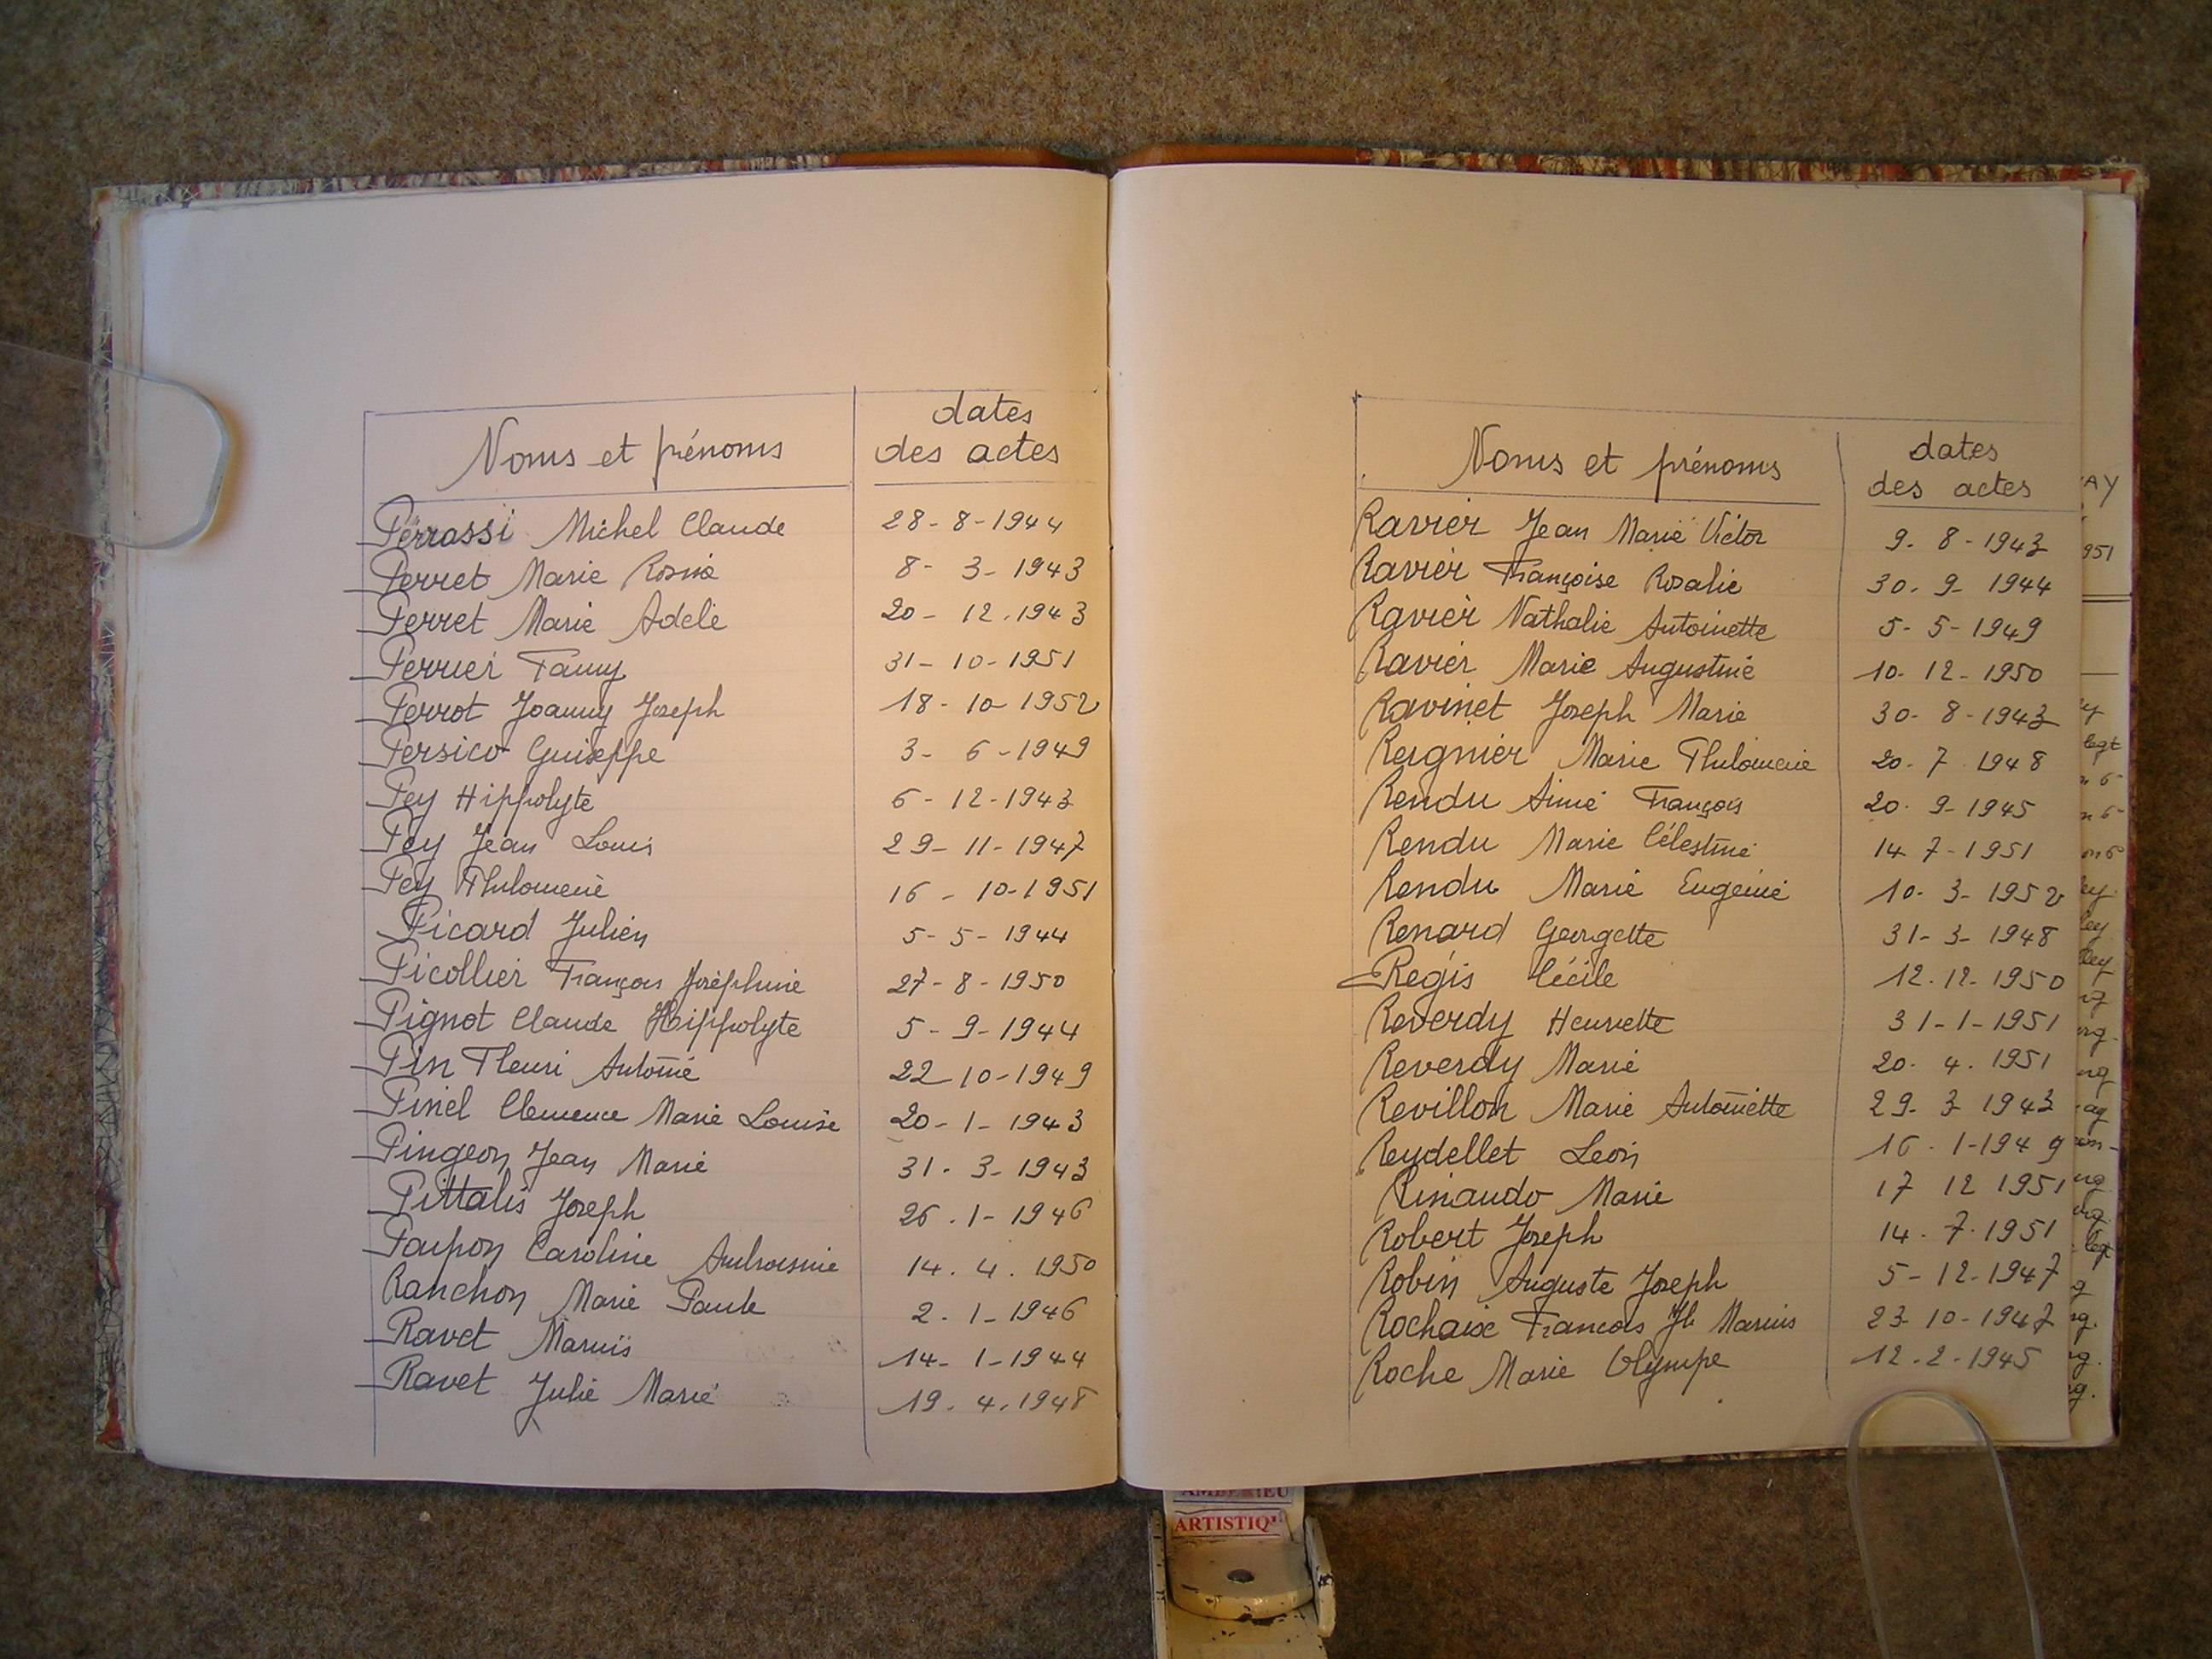 Noms et prénoms dates des actes
Perrassi Michel Claude 28-8-1944
Perret Marie Rosine 8-3-1943
Perret Marie Adele 20-12.1943
Perrier Fanny 31-10-1951
Perrot Joanny Joseph 18-10-1952
Persico Guiseppe 3-6-1949
Pey Hippolyte 6-12-1943
Pey Jean Louis 29-11-1947
Pey Philomene 16-10-1951
Picard Julien 5-5-1944
Picollier François Joséphine 27-8-1950
Pignot Claude Hippolyte 5-9-1944
Pin Fleuri Antoine 22-10-1949
Pinel Clemence Marie Louise 20-1-1943
Pingeon Jean Marie 31-3-1943
Pittalis Joseph 26.1-1946
Caroline 14.4.1950
Ranchon Marie Paule 2.1-1946
Ravet Marius 14-1-1944
Ravet Julie Marie 19.4.1948
Noms et prénoms dates des actes
Ravier Jean Marie Victor 9.8-1943
Ravier Françoise Rosalie 30.9-1944
Ravier Nathalie Antoinette 5-5-1949
Ravier Marie Augustine 10-12-1950
Ravinet Joseph Marie 30-8-1943
Reignier Marie Philomene 20-7 1948
Rendu Aimé François 20.9-1945
Rendu Marie Célestine 14 7-1951
Rendu Marie Eugenie 10-3-1952
Renard Georgette 31-3-1948
Régis Cécile 12.12-1950
Reverdy Henriette 31-1-1951
Reverdy Marie 20.4.1951
Revillon Marie Antoinette 29-3 1943
Reydellet Leon 16.1-1949
Rinaudo Marie 17 12 1951
Robert Joseph 14.7.1951
Robin Auguste Joseph 5-12-1947
Rochaix Francois Jh Marius 23 10-1947
Roche Marie Olympe 12-2-1945
AMBERIEU
ARTISTIQ